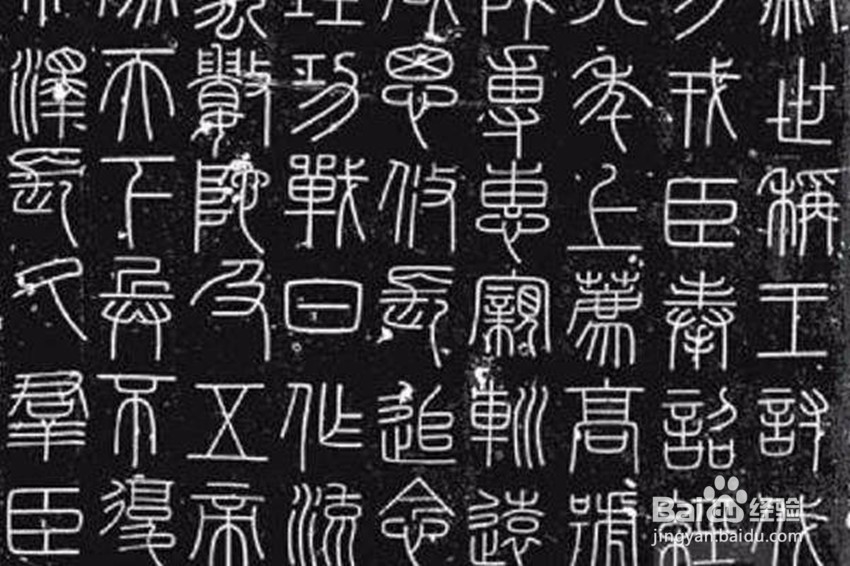 嗣世稱王討伐
方戎臣奉詔經
六年上薦高號
降專惠親巡遠
咸思攸長追念
理功戰日作流
萬數陀及五帝
家天下兵不復
利澤長久群臣
Baidu经验
jingyan.baidu.com